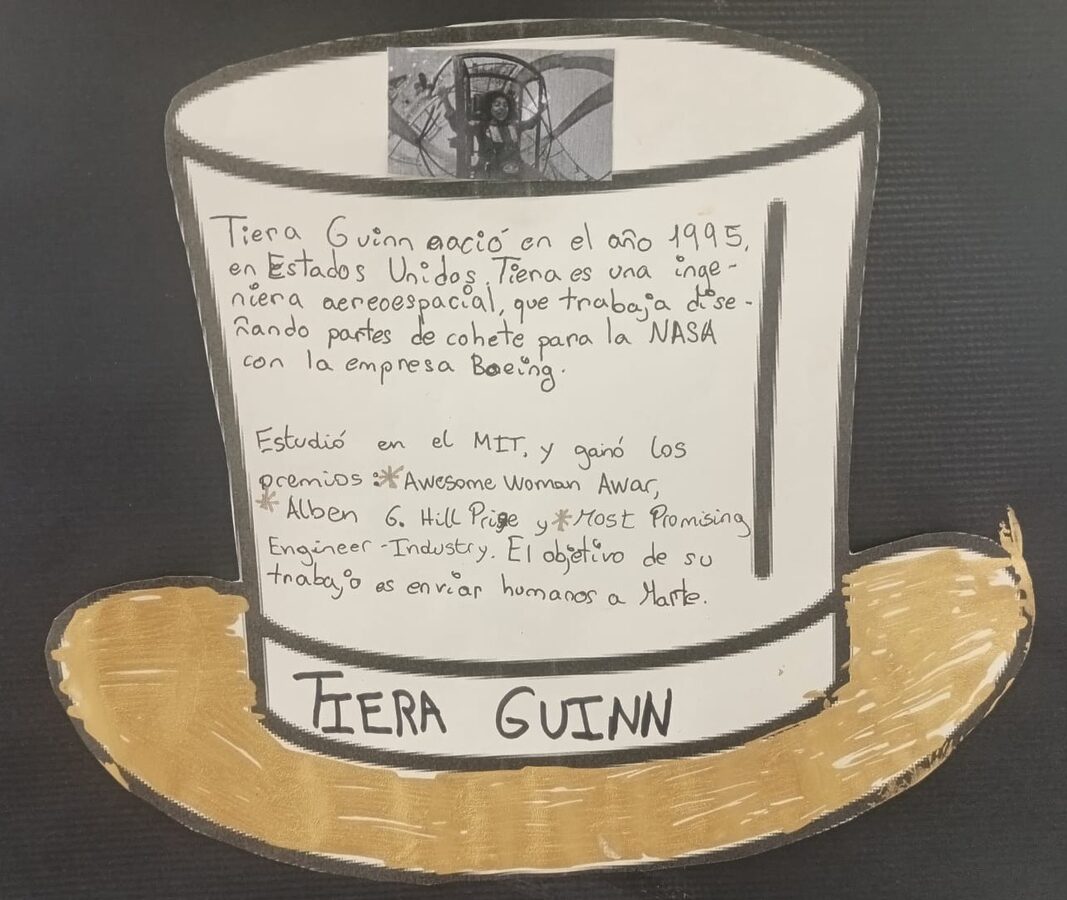 Tiera Guinn nació en el año 1995,
en Estados Unidos. Tiera es una inge-
niera aereoespacial, que trabaja dise-
ñando partes de cohete para la NASA
con la empresa Boeing.
Estudió en el MIT, y ganó los
premios: *Awesome Woman Awar,
*Alben G. Hill Prize y *Most Promising
Engineer-Industry. El objetivo de su
trabajo es enviar humanos a Marte.
TIERA GUINN